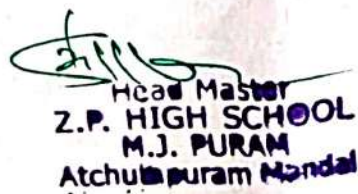 Head Master
Z.P. HIGH SCHOOL
M.J. PURAM
Atchutapuram Mandal